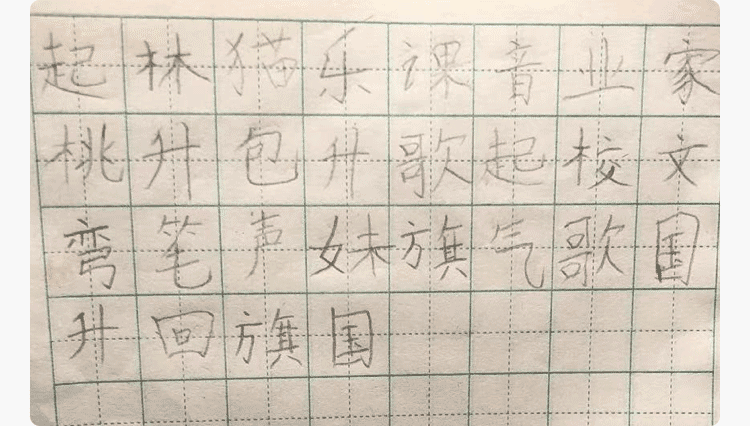 起林猫乐课音业家
桃升包升歌起校文
弯笔声妹旗气歌国
升回旗国